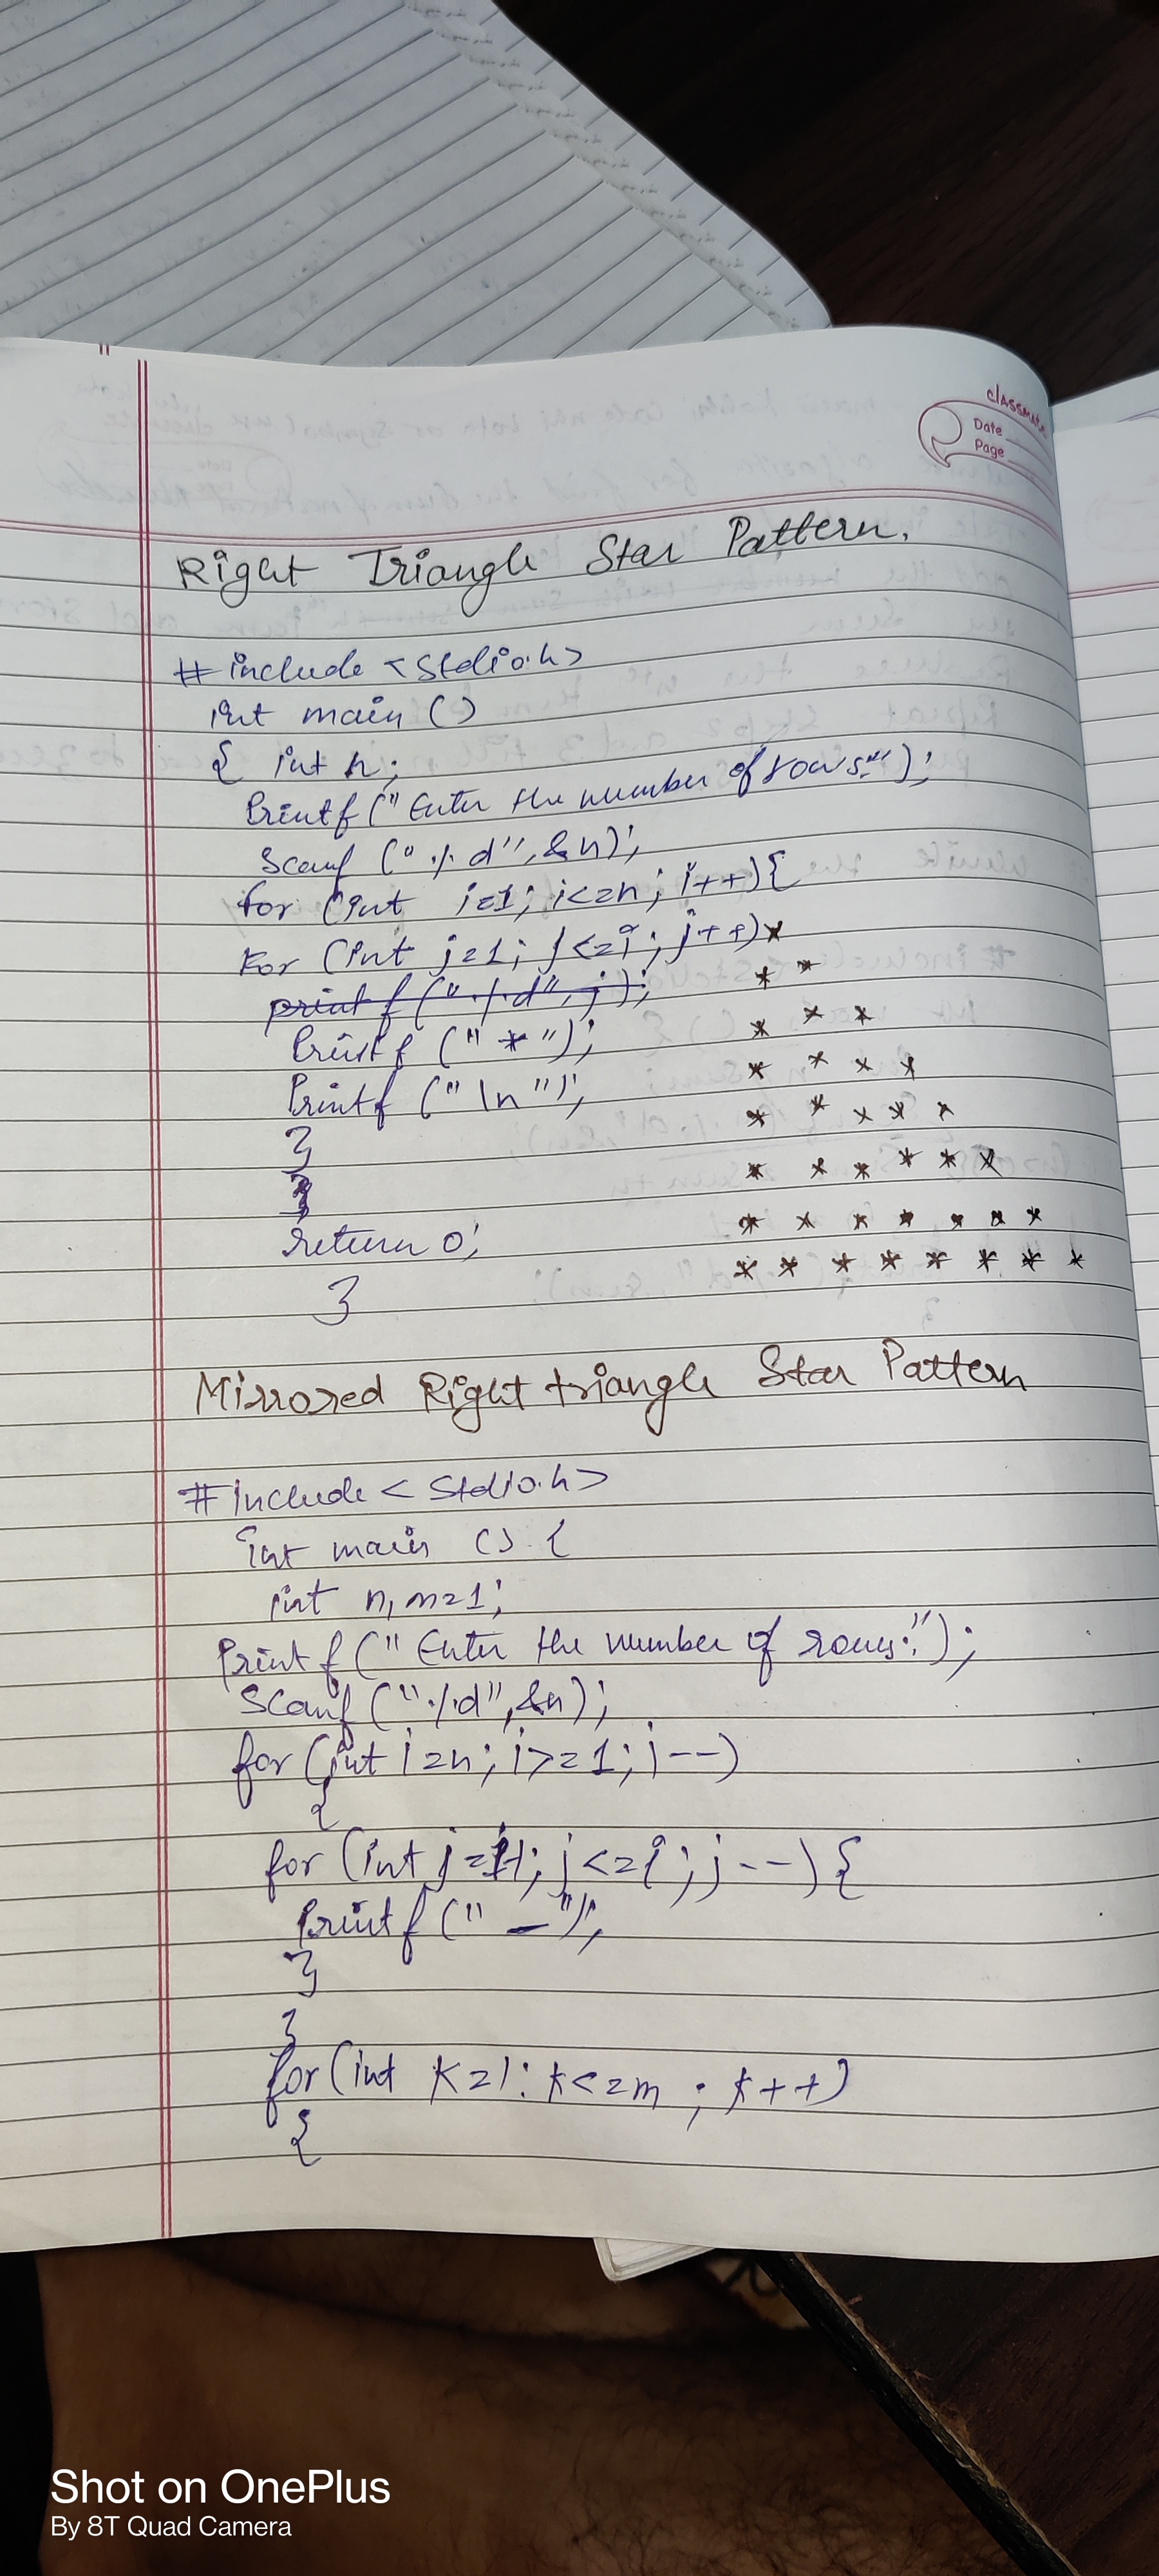 classmate
Date
Page
Right Triangle Star Pattern.
# include <stdio.h>
int main ()
{ int n;
Printf (" Enter the number of rows:"");
Scanf (" % d", &n);
for (int i=1; i<=n; i++){
For (int j=1; j<=i; j++)
*
printf (" % d", j);
* *
Printf (" * ");
* * *
Printf (" \n ");
* * * *
}
* * * * *
}
* * * * * *
return 0;
* * * * * * *
* * * * * * * *
}
Mirrored Right triangle Star Pattern
# include < stdio.h>
int main () {
int n, m=1;
Printf (" Enter the number of rows:");
Scanf ("%d", &n);
for (int i=n; i>=1; i--)
{
for (int j= ; j<=i; j--) {
Printf (" _");
}
}
for (int k=1: k<=m ; k++)
{
Shot on OnePlus
By 8T Quad Camera